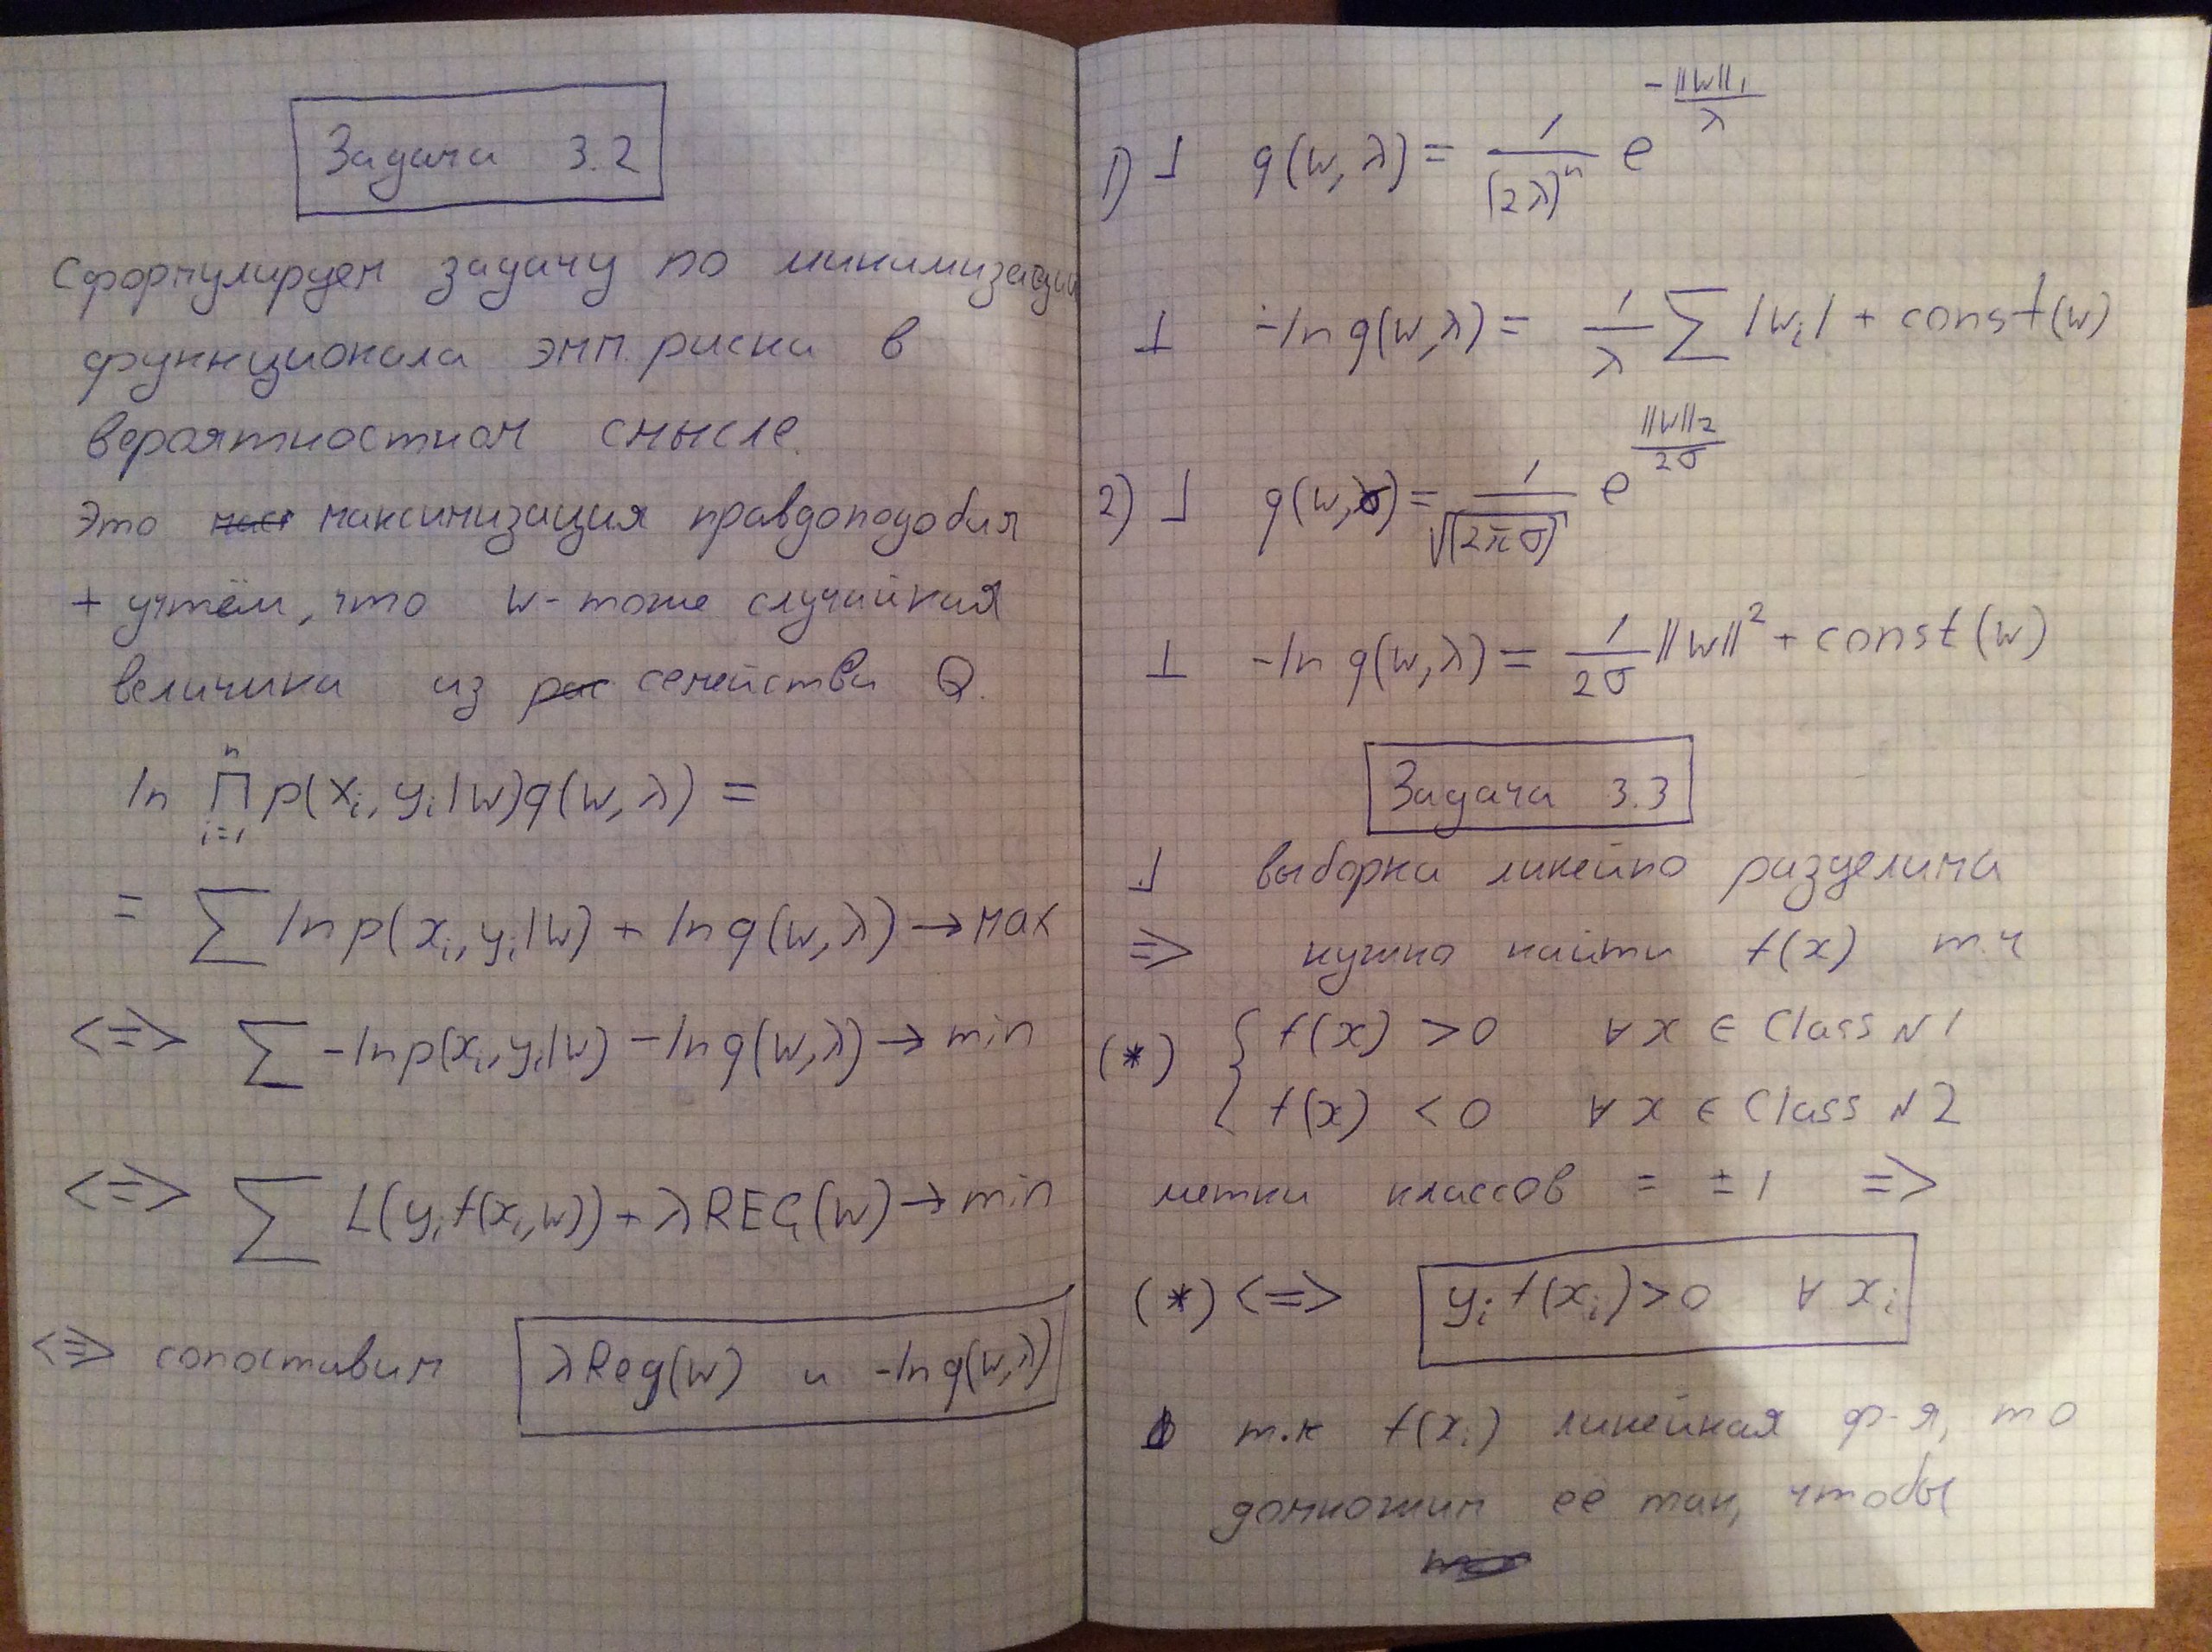 Задача 3.2
Сформулируем задачу по минимизации
функционала эмп. риска в
вероятностном смысле.
Это максимизация правдоподобия
+ учтём, что w - тоже случайная
величина из семейства Q.
ln ∏_{i=1}^{n} p(x_i, y_i | w) q(w, λ) =
= ∑ ln p(x_i, y_i | w) + ln q(w, λ) → max
<=> ∑ -ln p(x_i, y_i | w) - ln q(w, λ) → min
<=> ∑ L(y_i f(x_i, w)) + λ REG(w) → min
<=> сопоставим λReg(w) и -ln q(w, λ)
1) ⅃ q(w, λ) = 1/(2λ)^n e^{-||w||_1/λ}
⊥ -ln q(w, λ) = 1/λ ∑ |w_i| + const(w)
2) ⅃ q(w, σ) = 1/√(2πσ) e^{||w||_2/2σ}
⊥ -ln q(w, λ) = 1/2σ ||w||^2 + const(w)
Задача 3.3
⅃ выборка линейно разделима
=> нужно найти f(x) т.ч
(*) { f(x) > 0 ∀ x ∈ Class N1
f(x) < 0 ∀ x ∈ Class N2
метки классов = ±1 =>
(*) <=> y_i f(x_i) > 0 ∀ x_i
т.к f(x_i) линейная ф-я, то
домножим её так, чтобы